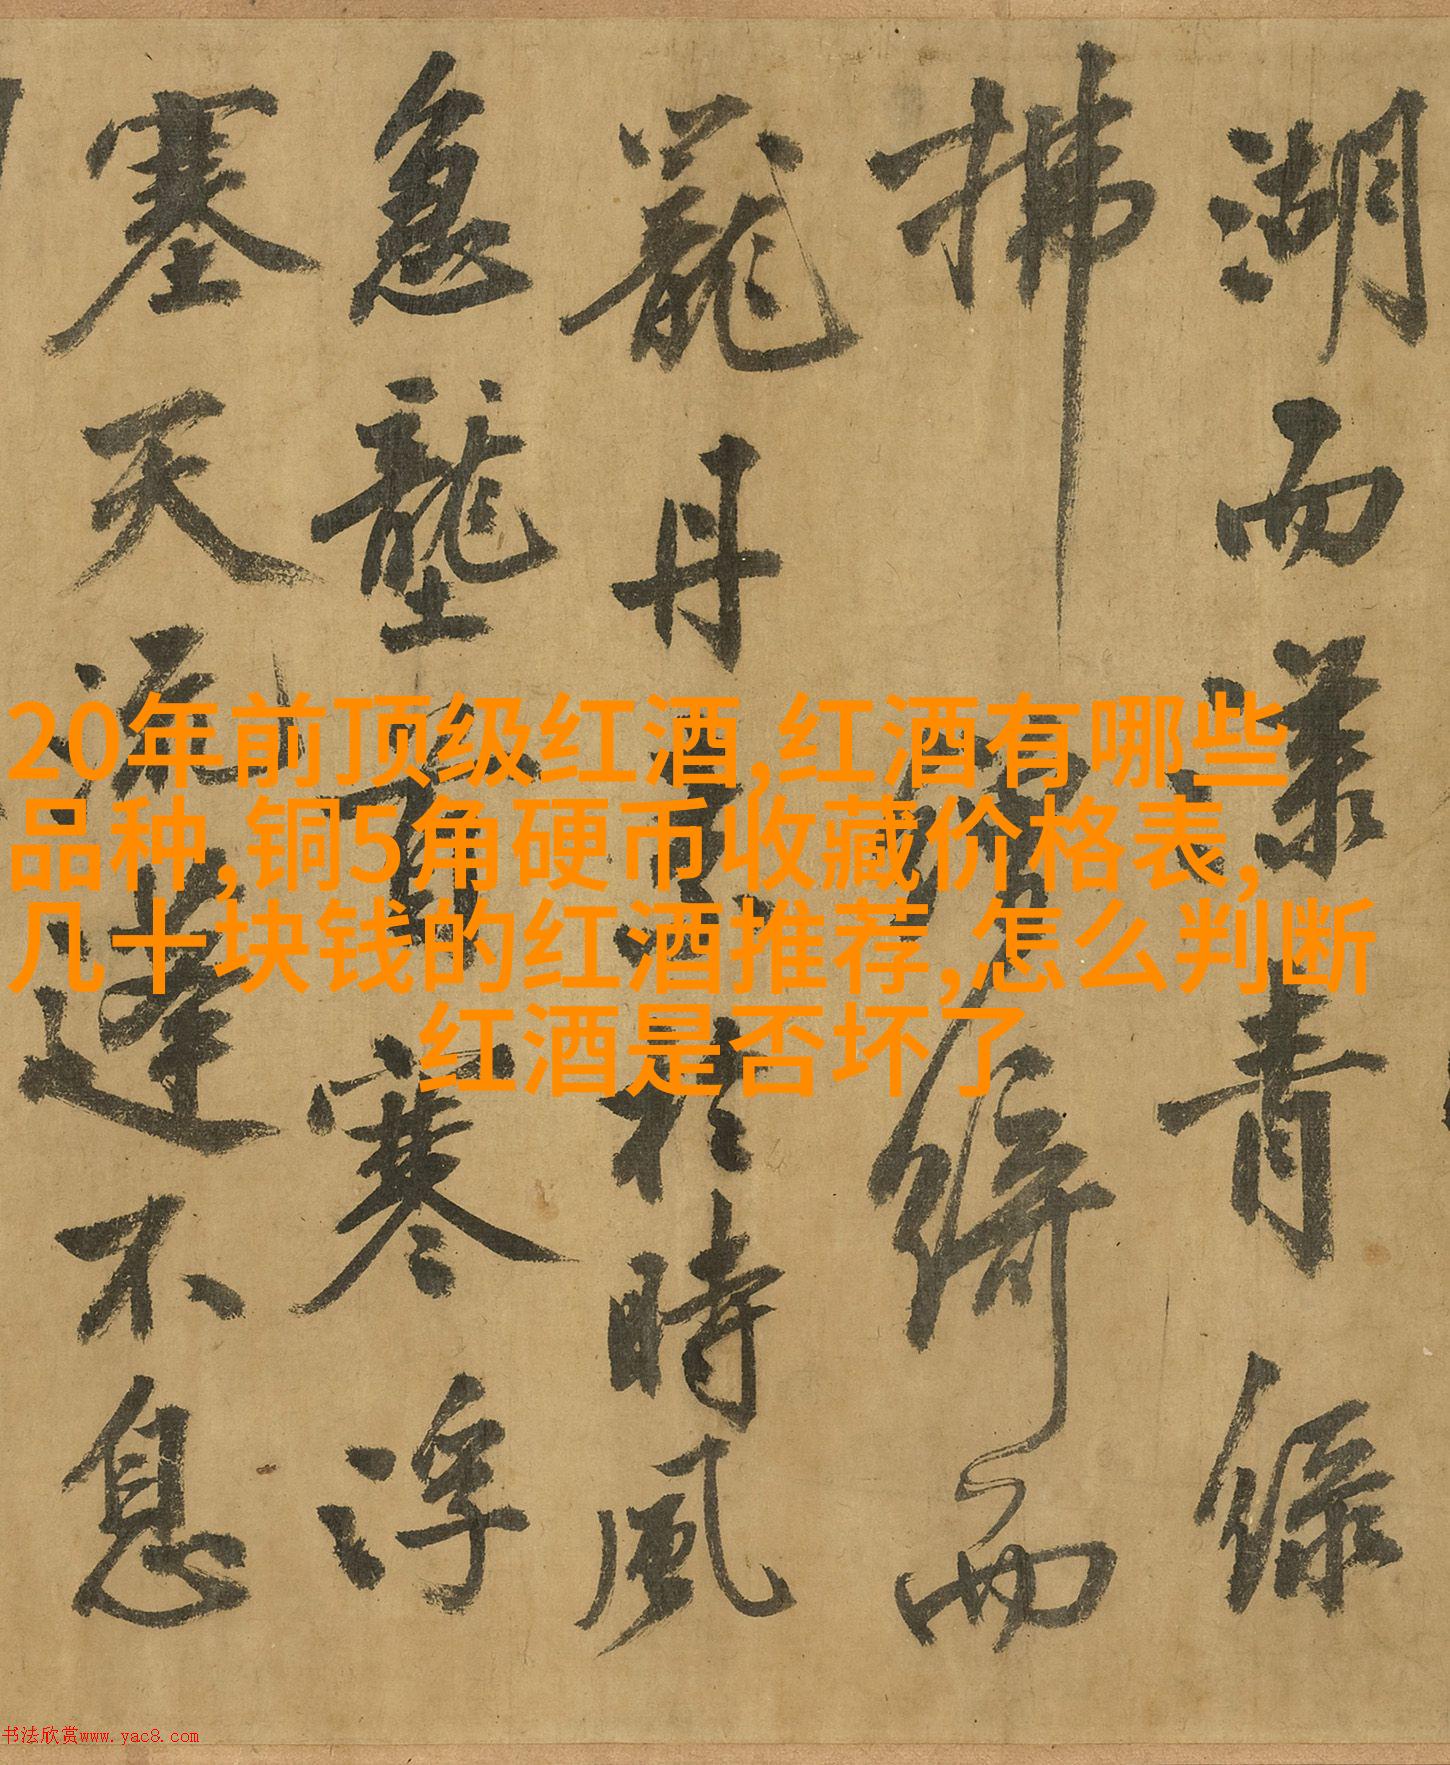 湖而漾青緑
拂綺而
籠丹於時風
急壟寒浮
塞天流不息
20年前顶级红酒,红酒有哪些
品种,铜5角硬币收藏价格表,
几十块钱的红酒推荐,怎么判断
红酒是否坏了
书法欣赏www.yac8.com